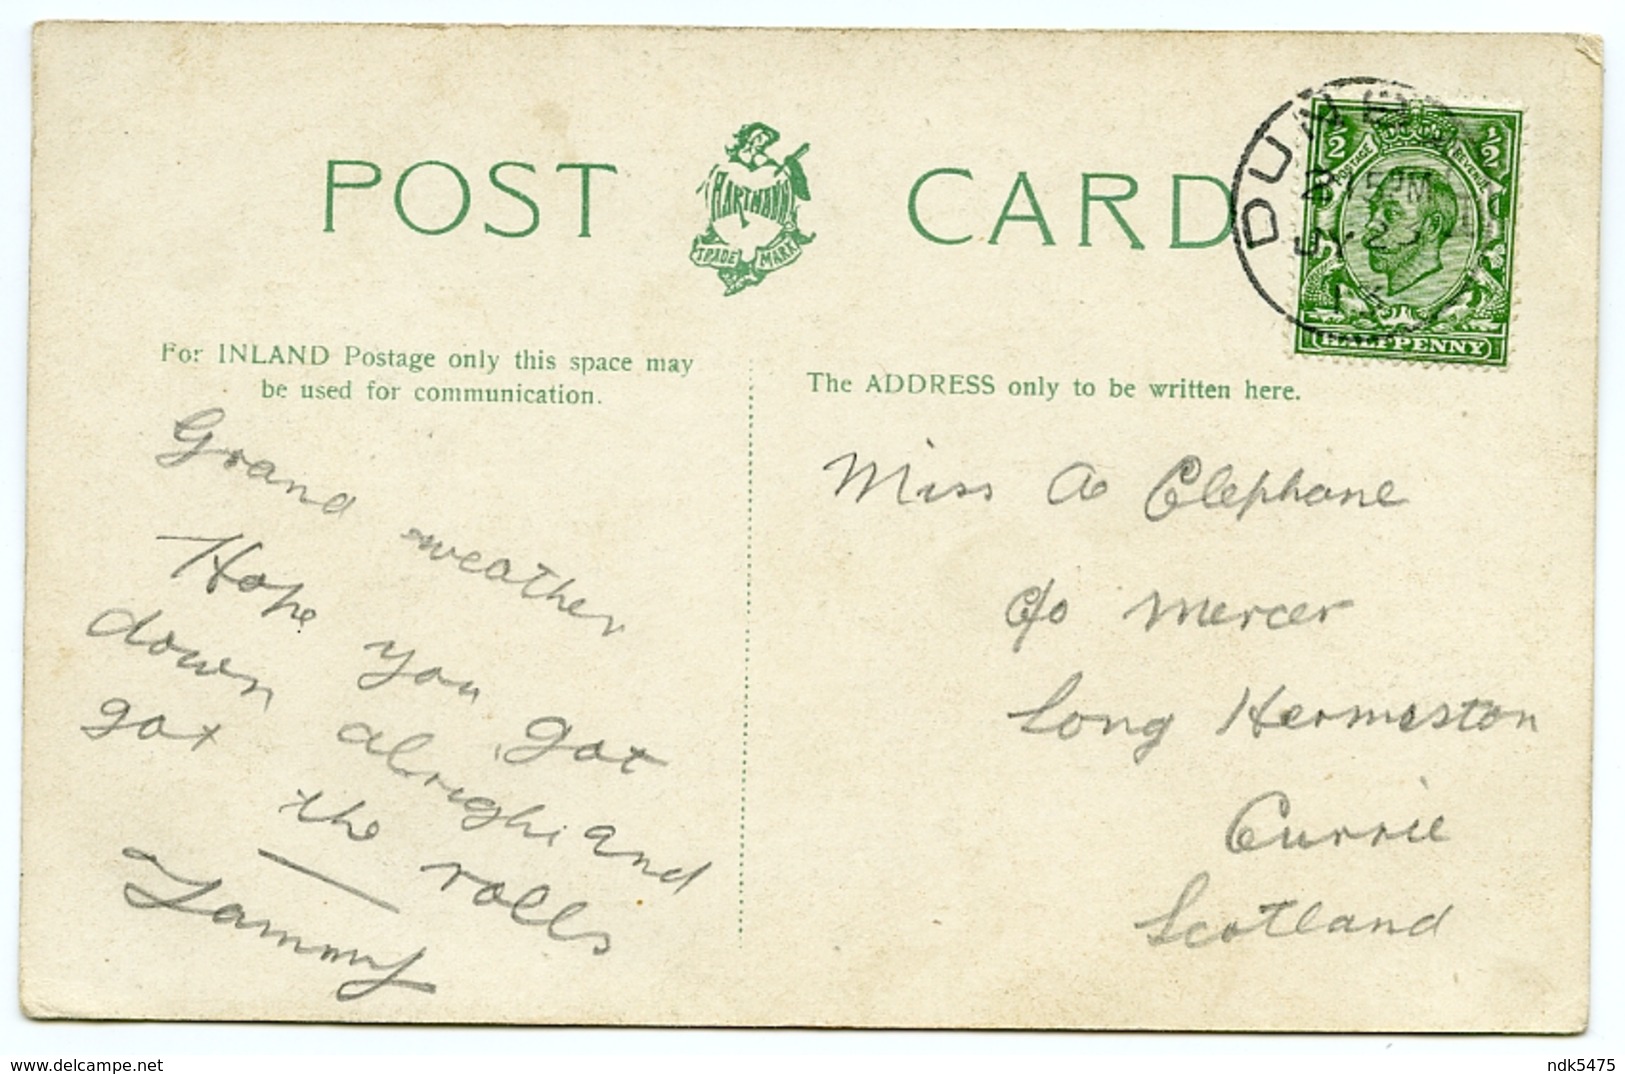 POST CARD
HARTMANN
TRADE MARK
For INLAND Postage only this space may
be used for communication.
The ADDRESS only to be written here.
1/2 POSTAGE REVENUE 1/2
HALFPENNY
5PM
JY
Grand weather
Hope you got
down alright and
got the rolls
Tammy
Miss A Elephane
c/o Mercer
Long Hermeston
Currie
Scotland
delcampe.net
ndk5475